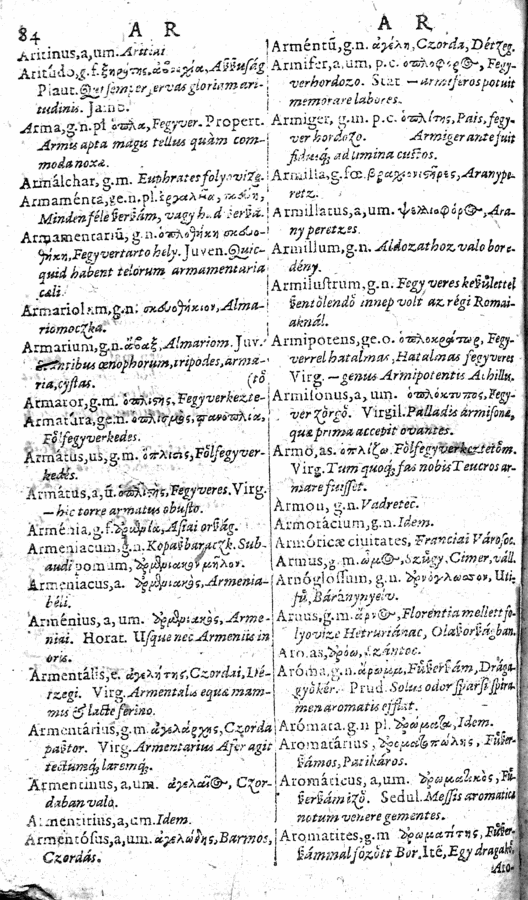 84 A R
Aritinus, a, um. Aritiai
Aritúdo, g. f. ξηρότης,
Plaut. Qui semper servas gloriam ari-
tudinis. Jamb.
Arma, g. n. pl. ὅπλα, Fegyver. Propert.
Armis apta magis tellus quàm com-
moda noxæ.
Armálchar, g. m. Euphrates folyo vize.
Armaménta, ge. n. pl.
Mindenféle
Armamentariũ, g. n. ὁπλοθήκη
Fegyvertarto hely. Juven. Quic-
quid habent telorum armamentaria
cæli.
Armariolum, g. n. Alma-
riomoczka.
Armarium, g. n. Almariom. Juv.
œnophorum, tripodes, arma-
ria, cystas. (tő
Armátor, g. m. ὁπλιστὴς, Fegyverkezte-
Armatúra, ge. n. ὁπλισμὸς, πανοπλία,
Fölfegyverkedes.
Armátus, us, g. m. ὅπλισις, Fölfegyver-
kedés.
Armátus, a, ũ. Fegyveres. Virg.
— hic torre armatus obusto.
Arménia, g. f. Asiai orság.
Armeniacum, g. n. Kopasbaraczk. Sub-
audi pomum, μῆλον.
Armeniacus, a. Armenia-
béli.
Arménius, a, um. Arme-
niai. Horat. Usque nec Armeniis in
oris.
Armentális, e. ἀγελήτης, Czordai, Dé-
tzegi. Virg. Armentalis equæ mam-
mis & lacte ferino.
Armentárius, g. m. ἀγελάρχης, Czorda
pastor. Virg. Armentarius Afer agit
tectumq́, laremq́.
Armentinus, a, um. Czor-
daban valo.
Armentitius, a, um. Idem.
Armentósus, a, um. ἀγελώδης, Barmos,
Czordás.
A R
Arméntũ, g. n. ἀγέλη, Czorda, Détzeg.
Armifer, a, um, p. c. ὁπλοφόρος, Fegy-
verhordozo. Stat — armiferos potuit
memorare labores.
Armiger, g. m. p. c. ὁπλίτης, Pais, fegy-
ver hordozo. Armiger ante fuit
fidusq́, ad limina custos.
Armilla, g. fœ. βραχιονιστῆρες, Aranype-
retz.
Armillatus, a, um. ψελλιοφόρος, Ara-
ny peretzes.
Armillum, g. n. Aldozathoz valo bor e-
dény.
Armilustrum, g. n. Fegyveres kesülettel
sentölendö innep volt az régi Romai-
aknál.
Armipotens, ge. o. ὁπλοκράτωρ, Fegy-
verrel hatalmas, Hatalmas fegyveres
Virg. — genus Armipotentis Achillis.
Armisonus, a, um. ὁπλόκτυπος, Fegy-
ver zörgő. Virgil. Palladis armisonæ,
quæ prima accepit ovantes.
Armo, as. ὁπλίζω. Fölfegyverkeztetöm.
Virg. Tum quoq́, fas nobis Teucros ar-
mare fuisset.
Armon, g. n. Vadretec.
Armorácium, g. n. Idem.
Armóricæ civitates, Franciai Városoc.
Armus, g. m. ὦμος, Cimer, váll.
Arnóglossum, g. n. ἀρνόγλωσσον, Uti-
fű, Báránynyelv.
Arnus, g. m. Florentia mellett fo-
lyo vize Hetruriánac, Olasorságban.
Aro, as, Szántoc.
Aróma, g. n. ἄρωμα, Drága-
gyökér. Prud. Solus odor sparsi spira-
men aromatis efflat.
Arómata, g. n. pl. Idem.
Aromatárius, Füser-
sámos, Patikáros.
Aromáticus, a, um. ἀρωματικὸς, Fü-
sersámizö. Sedul. Messis aromaticæ
notum venere gementes.
Aromatites, g. m ἀρωματίτης, Füser-
sámmal főzött Bor, Itẽ, Egy dragakő.
Aro-